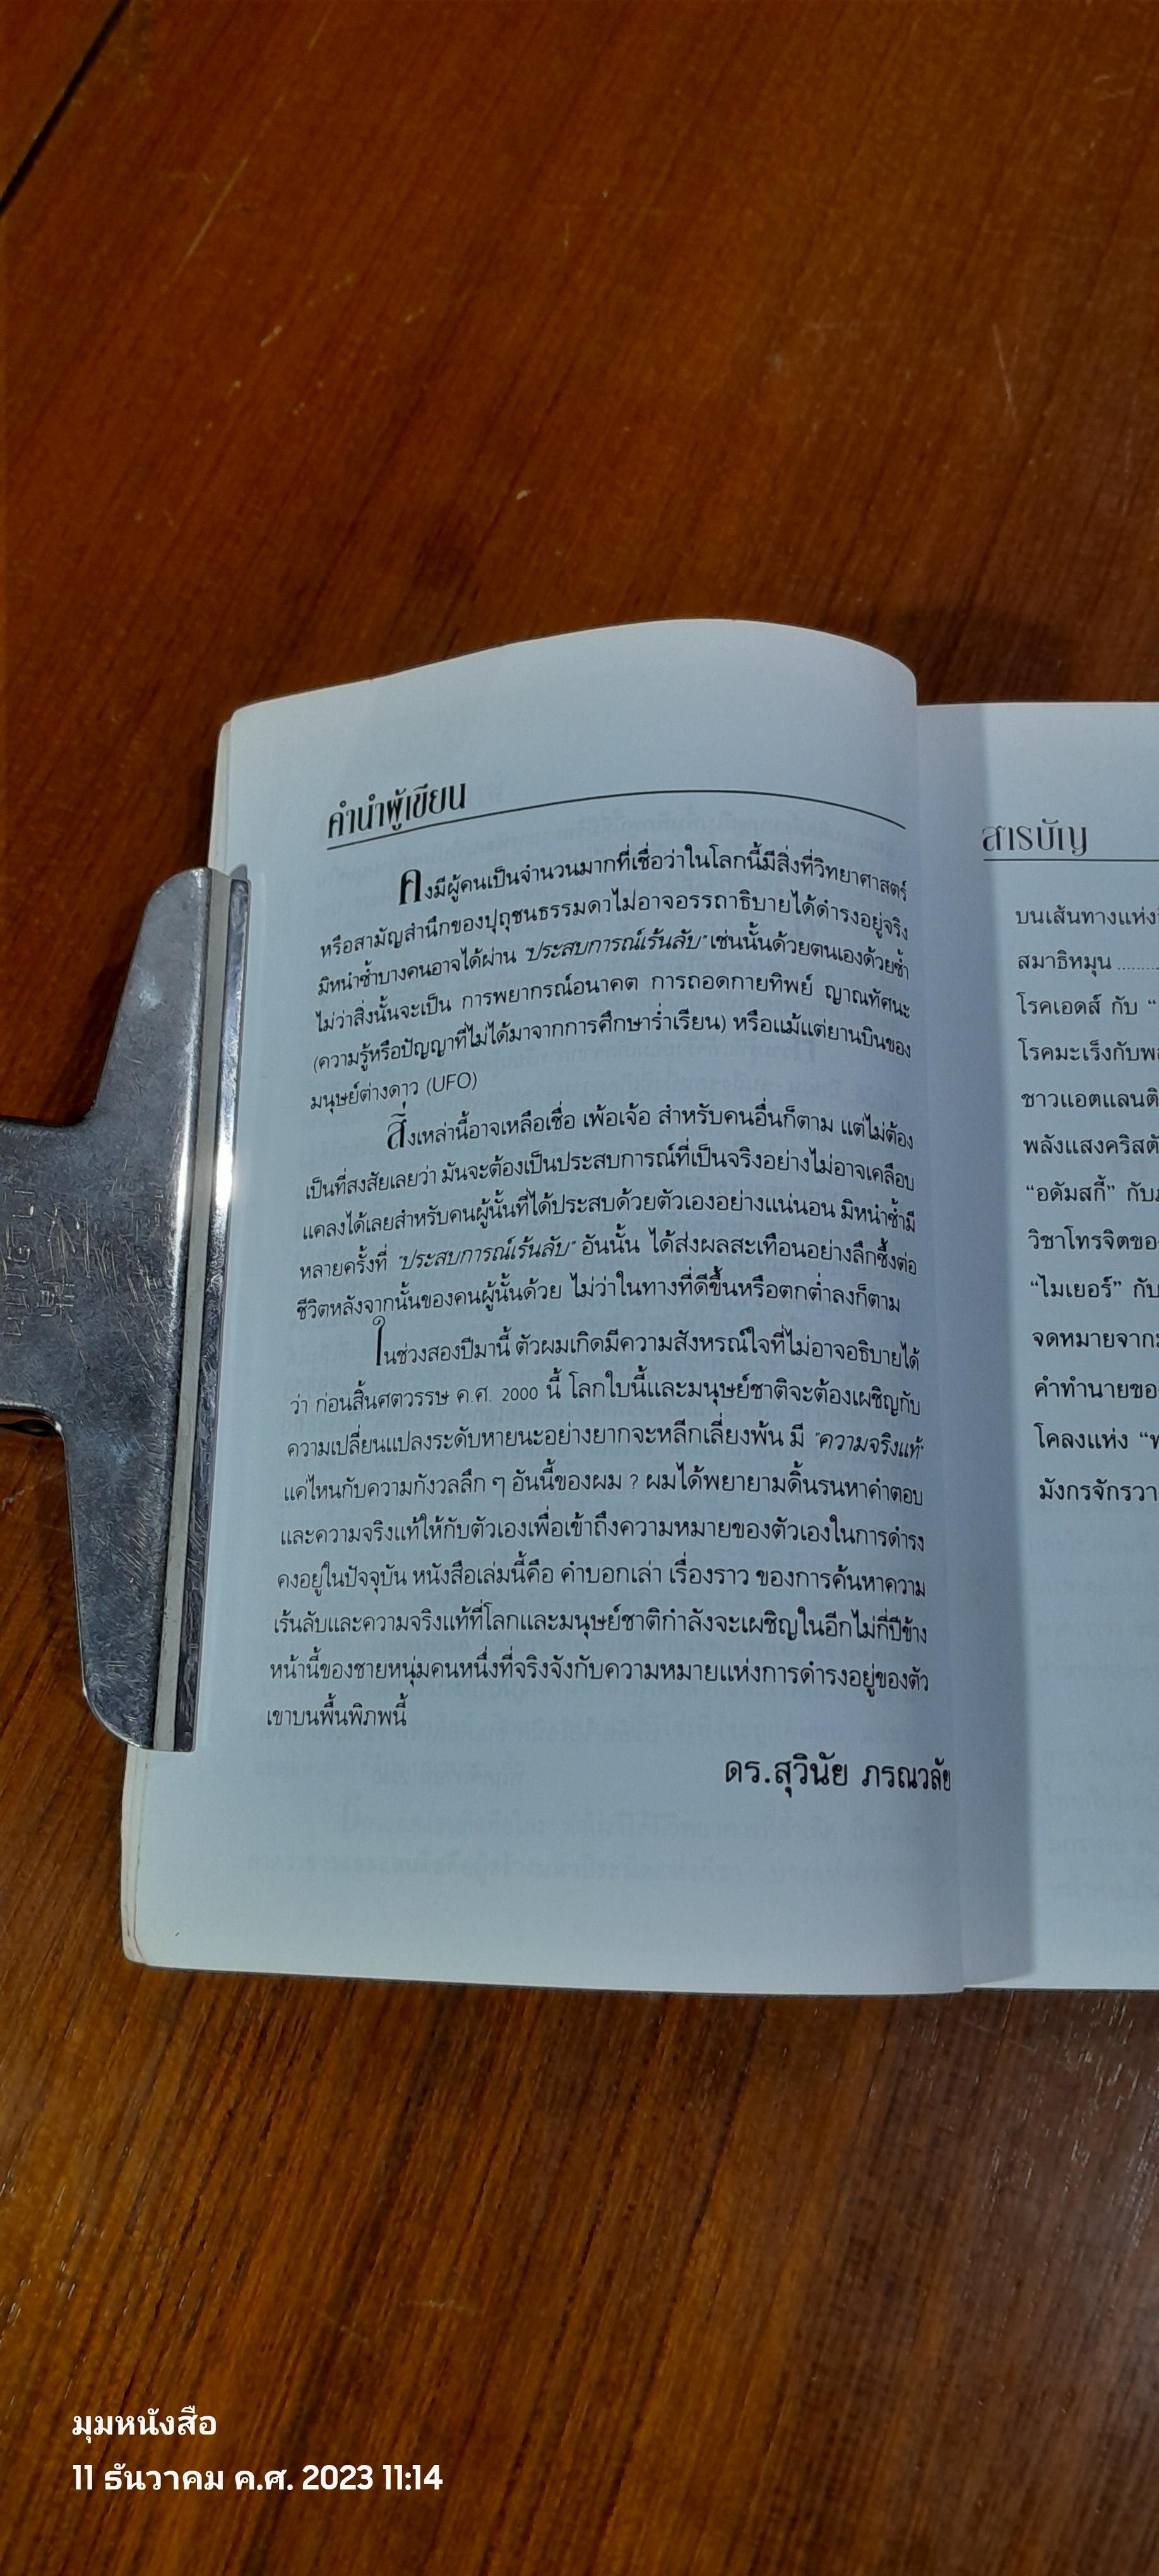 คำนำผู้เขียน
คงมีผู้คนเป็นจำนวนมากที่เชื่อว่าในโลกนี้มีสิ่งที่วิทยาศาสตร์
หรือสามัญสำนึกของปุถุชนธรรมดาไม่อาจอรรถาธิบายได้ดำรงอยู่จริง
มิหนำซ้ำบางคนอาจได้ผ่าน "ประสบการณ์เร้นลับ" เช่นนั้นด้วยตนเองด้วยซ้ำ
ไม่ว่าสิ่งนั้นจะเป็น การพยากรณ์อนาคต การถอดกายทิพย์ ญาณทัศนะ
(ความรู้หรือปัญญาที่ไม่ได้มาจากการศึกษาร่ำเรียน) หรือแม้แต่ยานบินของ
มนุษย์ต่างดาว (UFO)
สิ่งเหล่านี้อาจเหลือเชื่อ เพ้อเจ้อ สำหรับคนอื่นก็ตาม แต่ไม่ต้อง
เป็นที่สงสัยเลยว่า มันจะต้องเป็นประสบการณ์ที่เป็นจริงอย่างไม่อาจเคลือบ
แคลงได้เลยสำหรับคนผู้นั้นที่ได้ประสบด้วยตัวเองอย่างแน่นอน มิหนำซ้ำมี
หลายครั้งที่ "ประสบการณ์เร้นลับ" อันนั้น ได้ส่งผลสะเทือนอย่างลึกซึ้งต่อ
ชีวิตหลังจากนั้นของคนผู้นั้นด้วย ไม่ว่าในทางที่ดีขึ้นหรือตกต่ำลงก็ตาม
ในช่วงสองปีมานี้ ตัวผมเกิดมีความสังหรณ์ใจที่ไม่อาจอธิบายได้
ว่า ก่อนสิ้นศตวรรษ ค.ศ. 2000 นี้ โลกใบนี้และมนุษย์ชาติจะต้องเผชิญกับ
ความเปลี่ยนแปลงระดับหายนะอย่างยากจะหลีกเลี่ยงพ้น มี "ความจริงแท้"
แค่ไหนกับความกังวลลึก ๆ อันนี้ของผม ? ผมได้พยายามดิ้นรนหาคำตอบ
และความจริงแท้ให้กับตัวเองเพื่อเข้าถึงความหมายของตัวเองในการดำรง
คงอยู่ในปัจจุบัน หนังสือเล่มนี้คือ คำบอกเล่า เรื่องราว ของการค้นหาความ
เร้นลับและความจริงแท้ที่โลกและมนุษย์ชาติกำลังจะเผชิญในอีกไม่กี่ปีข้าง
หน้านี้ของชายหนุ่มคนหนึ่งที่จริงจังกับความหมายแห่งการดำรงอยู่ของตัว
เขาบนพื้นพิภพนี้
ดร.สุวินัย ภรณวลัย
สารบัญ
บนเส้นทางแห่ง
สมาธิหมุน ..........
โรคเอดส์ กับ "
โรคมะเร็งกับ
ชาวแอตแลนติ
พลังแสงคริสตั
"อดัมสกี้" กับ
วิชาโทรจิตขอ
"ไมเยอร์" กับ
จดหมายจาก
คำทำนายขอ
โคลงแห่ง "
มังกรจักรวา
มุมหนังสือ
11 ธันวาคม ค.ศ. 2023 11:14